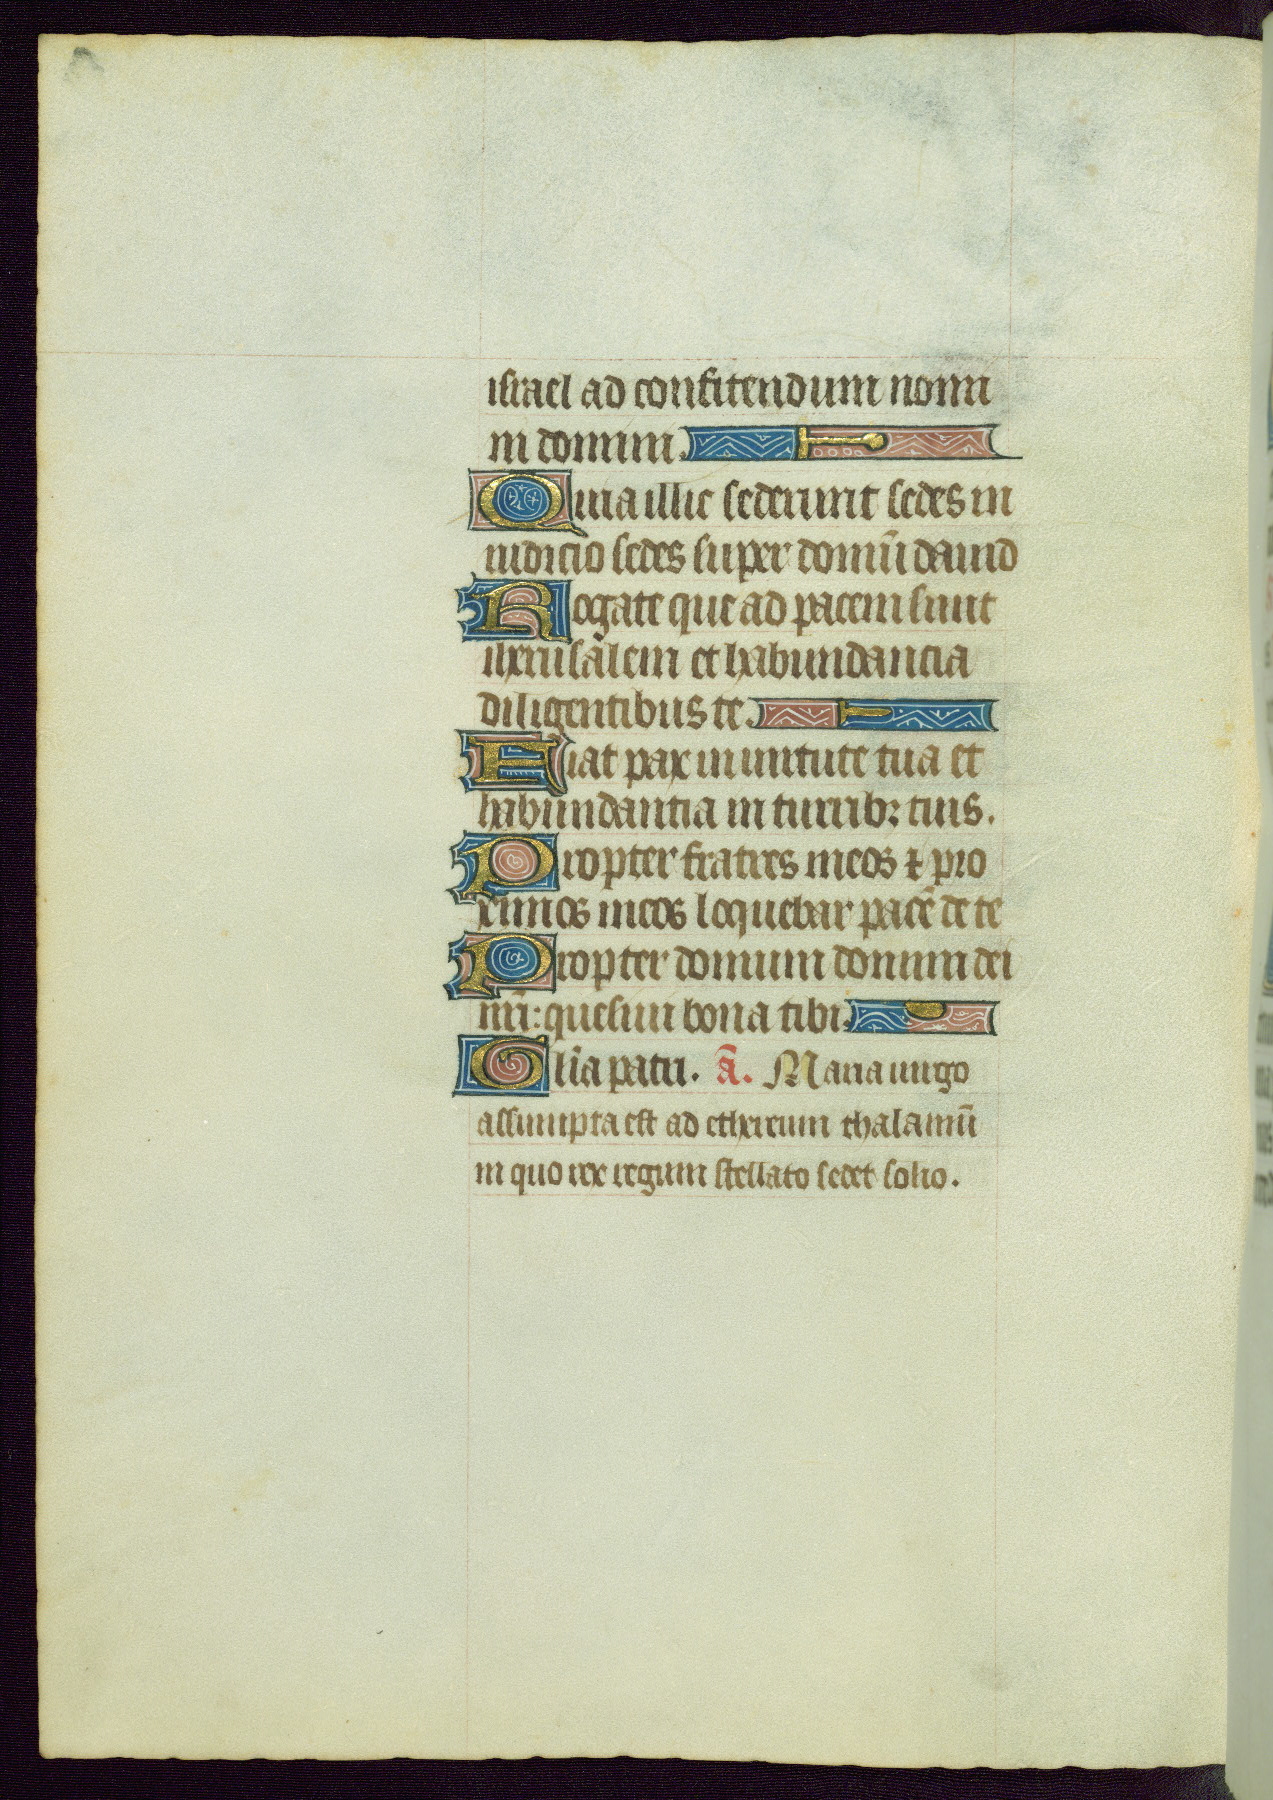 israel ad confitendum nomi
ni domini.
Quia illic sederunt sedes in
iudicio sedes super domũ dauid
Rogate que ad pacem sunt
iherusalem et habundancia
diligentibus te.
Fiat pax in uirtute tua et
habundantia in turrib; tuis.
Propter fratres meos ⁊ pro
ximos meos loquebar pacẽ de te
Propter domum domini dei
nr̃i: quesiui bona tibi.
Glĩa patri. ã. Maria uirgo
assumpta est ad ethereum thalamũ
in quo rex regum stellato sedet solio.